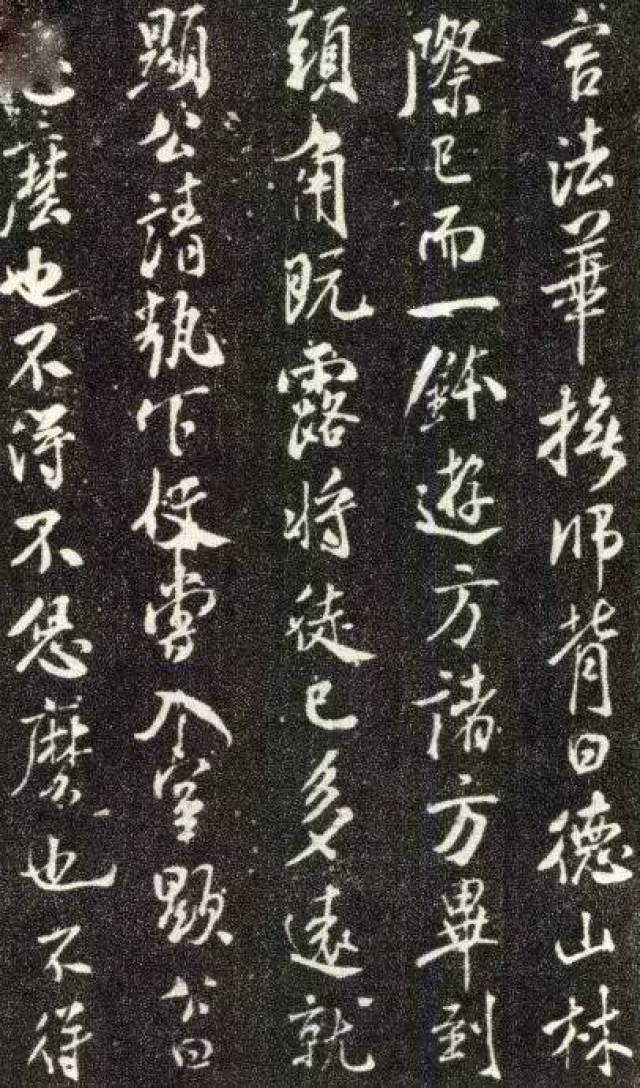 言法華撫師背曰德山林
際已而一鉢遊方諸方畢到
頭角既露將徒已多遠就
顯公請執下役嘗入室顯公曰
恁麼也不得不恁麼也不得